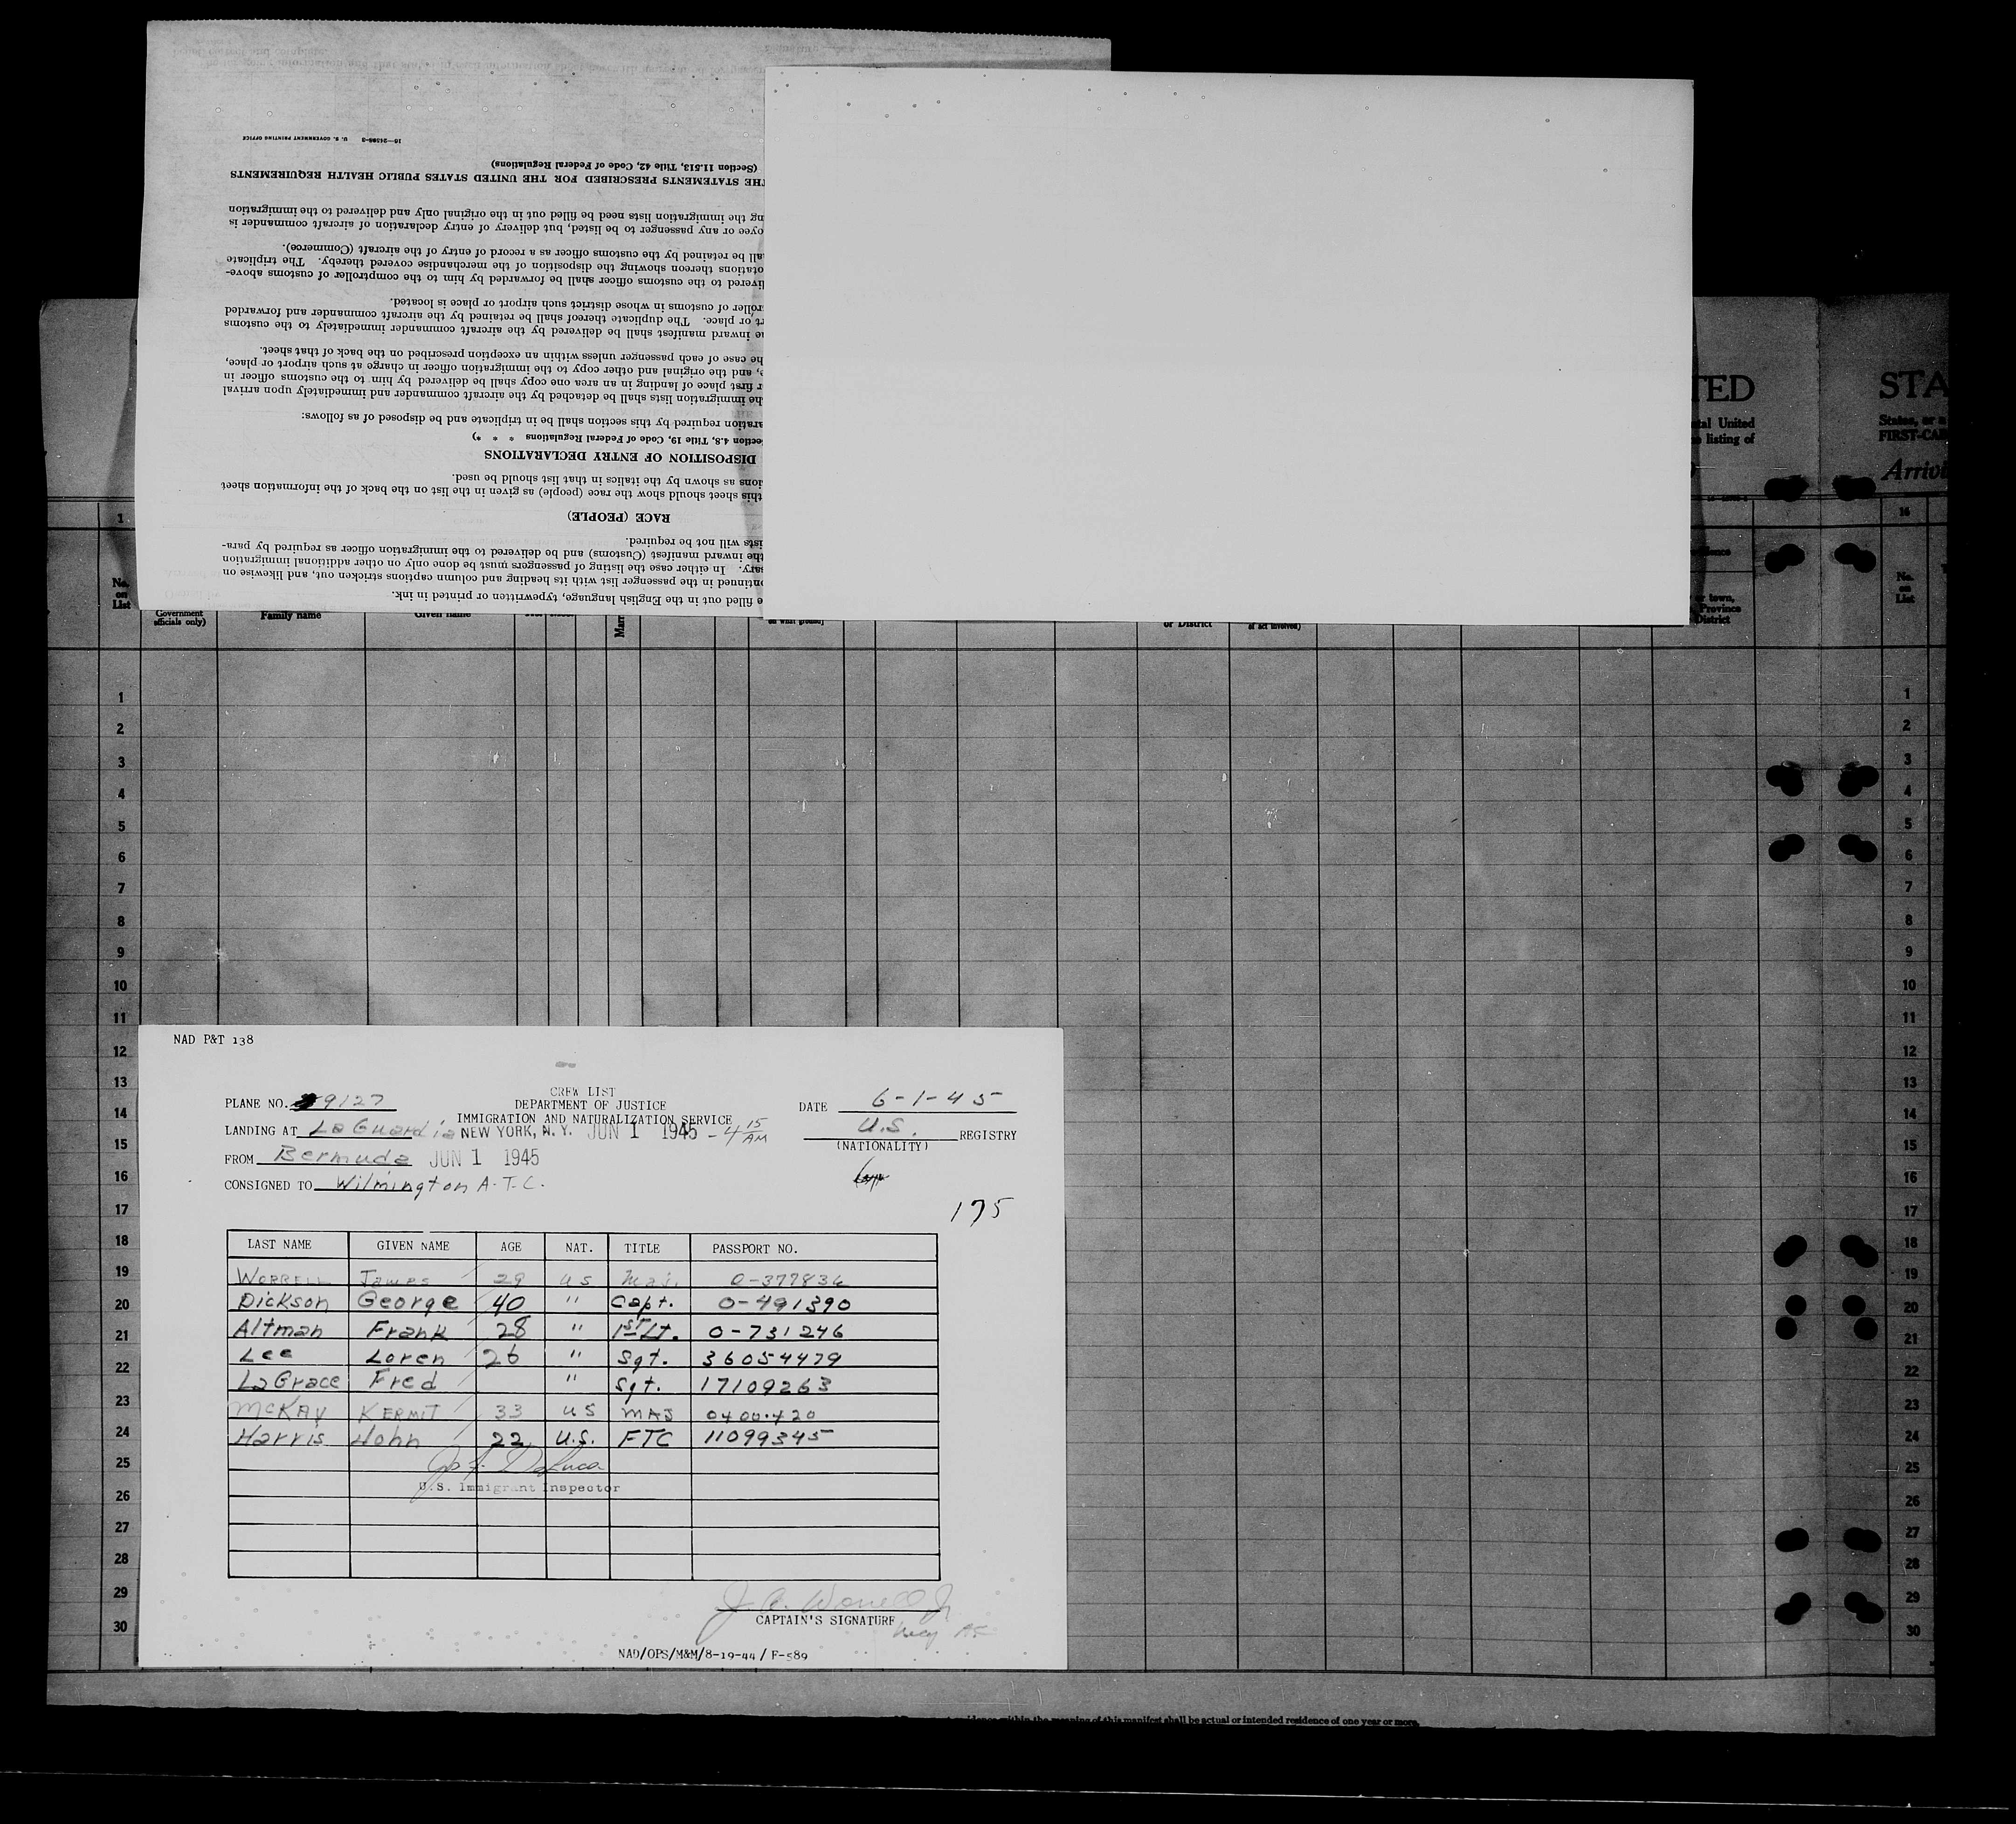 16—24398-3 U. S. GOVERNMENT PRINTING OFFICE
(Section 11.513, Title 42, Code of Federal Regulations)
THE STATEMENTS PRESCRIBED FOR THE UNITED STATES PUBLIC HEALTH REQUIREMENTS
the immigration lists need be filled out in the original only and delivered to the immigration
or any passenger to be listed, but delivery of entry declaration of aircraft commander is
be retained by the customs officer as a record of entry of the aircraft (Commerce).
thereon showing the disposition of the merchandise covered thereby. The triplicate
to the customs officer shall be forwarded by him to the comptroller of customs above-
of customs in whose district such airport or place is located.
or place. The duplicate thereof shall be retained by the aircraft commander and forwarded
inward manifest shall be delivered by the aircraft commander immediately to the customs
the case of each passenger unless within an exception prescribed on the back of that sheet.
and the original and other copy to the immigration officer in charge at such airport or place,
first place of landing in an area one copy shall be delivered by him to the customs officer in
the immigration lists shall be detached by the aircraft commander and immediately upon arrival
required by this section shall be in triplicate and be disposed of as follows:
4.8, Title 19, Code of Federal Regulations * * *)
DISPOSITION OF ENTRY DECLARATIONS
as shown by the italics in that list should be used.
this sheet should show the race (people) as given in the list on the back of the information sheet
RACE (PEOPLE)
will not be required.
the inward manifest (Customs) and be delivered to the immigration officer as required by para-
In either case the listing of passengers must be done only on other additional immigration
in the passenger list with its heading and column captions stricken out, and likewise on
filled out in the English language, typewritten or printed in ink.
TED
STA
United
States, or a
listing of
FIRST-CA
Arrivi
1
16
No. on List
Government officials only)
Family name
Given name
on what ground)
or District
of act involved)
or town, Province District
No. on List
1 1
2 2
3 3
4 4
5 5
6 6
7 7
8 8
9 9
10 10
11 11
12 12
13 13
14 14
15 15
16 16
17 17
18 18
19 19
20 20
21 21
22 22
23 23
24 24
25 25
26 26
27 27
28 28
29 29
30 30
NAD P&T 138
CREW LIST
PLANE NO. 9127 DEPARTMENT OF JUSTICE DATE 6-1-45
IMMIGRATION AND NATURALIZATION SERVICE
LANDING AT La Guardia NEW YORK, N.Y. JUN 1 1945 - 4 15 AM U.S. REGISTRY
(NATIONALITY)
FROM Bermuda JUN 1 1945
CONSIGNED TO Wilmington A.T.C.
175
LAST NAME GIVEN NAME AGE NAT. TITLE PASSPORT NO.
WORRELL James 29 US Maj. 0-377836
Dickson George 40 " Capt. 0-491390
Altman Frank 28 " 1st Lt. 0-731246
Lee Loren 26 " Sgt. 36054479
LaGrace Fred " Sgt. 17109263
McKAY KERMIT 33 US MAJ
Harris John 22 U.S. FTC 11099345
U.S. Immigrant Inspector
J. A. Worrell Jr
CAPTAIN'S SIGNATURE
NAD/OPS/M&M/8-19-44/F-589
within the meaning of this manifest shall be actual or intended residence of one year or more.